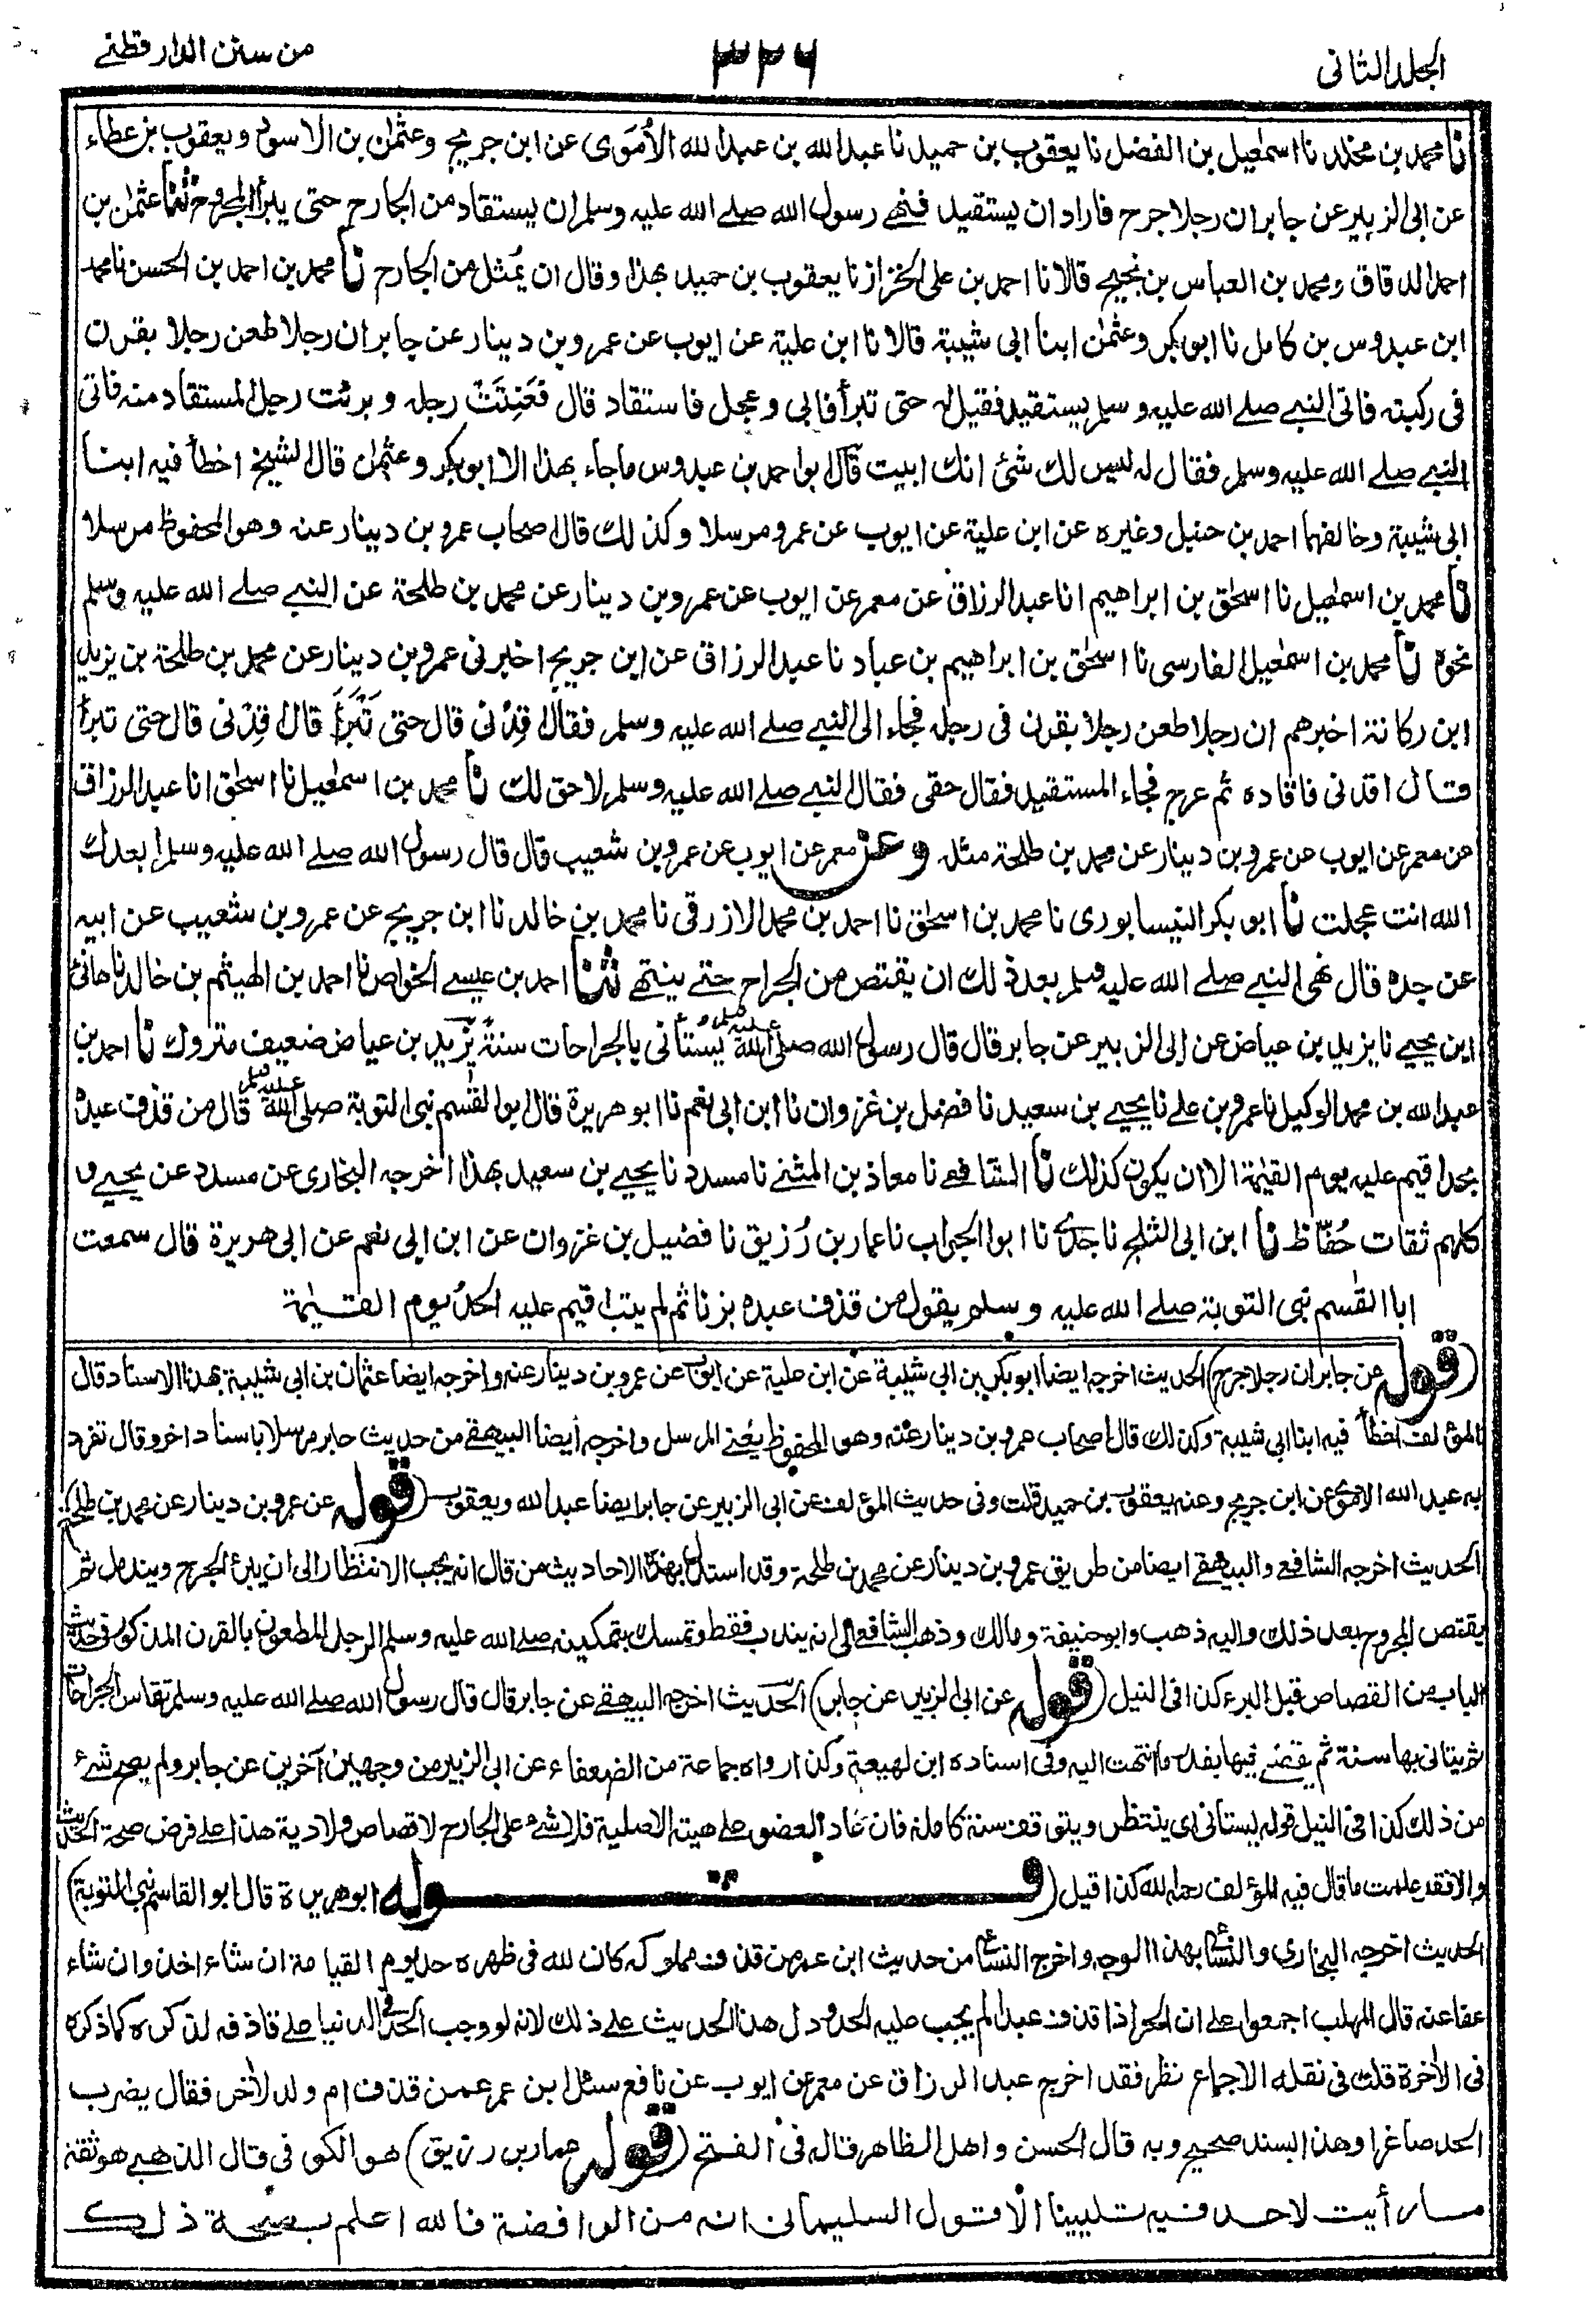 الجلد الثانى
٣٢٦
من سنن الدارقطنے
نا محمد بن مخلد نا اسمٰعيل بن الفضل نا يعقوب بن حميد نا عبد الله بن عبد الله الأُمَوى عن ابن جريج وعثمٰن بن الاسود ويعقوب بن عطاء
عن ابى الزبير عن جابر ان رجلا جرح فاراد ان يستقيد فنهى رسول الله صلے الله عليه وسلم ان يستقاد من الجارح حتى يبرأ المجروح ثنا عثمٰن بن
احمد الدقاق ومحمد بن العباس بن نجيح قالا نا احمد بن على الخزاز نا يعقوب بن حميد بهذا وقال ان يُمثل من الجارح نا محمد بن احمد بن الحسن نا محمد
ابن عبدوس بن كامل نا ابو بكر وعثمٰن ابنا ابى شيبة قالا نا ابن علية عن ايوب عن عمرو بن دينار عن جابر ان رجلا طعن رجلا بقرن
فى ركبته فاتى النبے صلے الله عليه وسلم يستقيد فقيل له حتى تبرأ فابى وعجل فاستقاد قال فَعَنِتَتْ رجله وبرئت رجل المستقاد منه فاتى
النبے صلے الله عليه وسلم فقال له ليس لك شئ انك ابيت قال ابو احمد بن عبدوس ما جاء بهذا الا ابو بكر وعثمٰن قال الشيخ اخطأ فيه ابنا
ابى شيبة وخالفهما احمد بن حنبل وغيره عن ابن علية عن ايوب عن عمرو مرسلا وكذلك قال اصحاب عمرو بن دينار عنه وهو المحفوظ مرسلا
نا محمد بن اسمٰعيل نا اسحٰق بن ابراهيم انا عبد الرزاق عن معمر عن ايوب عن عمرو بن دينار عن محمد بن طلحة عن النبے صلے الله عليه وسلم
نحوه نا محمد بن اسمٰعيل الفارسى نا اسحٰق بن ابراهيم بن عباد نا عبد الرزاق عن ابن جريج اخبرنى عمرو بن دينار عن محمد بن طلحة بن يزيد
ابن ركانة اخبرهم ان رجلا طعن رجلا بقرن فى رجله فجاء الى النبے صلے الله عليه وسلم فقال قِدْنى قال حتى تَبْرَأَ قال قِدْنى قال حتى تبرأ
قال اقدنى فاقاده ثم عرج فجاء المستقيد فقال حقى فقال النبے صلے الله عليه وسلم لا حق لك نا محمد بن اسمٰعيل نا اسحٰق انا عبد الرزاق
عن معمر عن ايوب عن عمرو بن دينار عن محمد بن طلحة مثله وعن معمر عن ايوب عن عمرو بن شعيب قال قال رسول الله صلے الله عليه وسلم ابعدك
الله انت عجلت نا ابو بكر النيسابورى نا محمد بن اسحٰق نا احمد بن محمد الازرقى نا محمد بن خالد نا ابن جريج عن عمرو بن شعيب عن ابيه
عن جده قال نهى النبے صلے الله عليه وسلم بعد ذلك ان يقتص من الجراح حتے ينتهے ثنا احمد بن عيسے الخواص نا احمد بن الهيثم بن خالد نا هانئ
ابن يحيے نا يزيد بن عياض عن ابى الزبير عن جابر قال قال رسول الله صلى الله عليه وسلم يستأنى بالجراحات سنة يزيد بن عياض ضعيف متروك نا احمد بن
عبد الله بن محمد الوكيل نا عمرو بن علے نا يحيے بن سعيد نا فضيل بن غزوان نا ابن ابى نعم نا ابو هريرة قال ابو القٰسم نبى التوبة صلى الله عليه وسلم قال من قذف عبده
بحد اقيم عليه يوم القيٰمة الا ان يكون كذلك نا الشافعے نا معاذ بن المثنے نا مسدد نا يحيے بن سعيد بهذا اخرجه البخارى عن مسدد عن يحيے و
كلهم ثقات حُفّاظ نا ابن ابى الثلج نا جدى نا ابو الجواب نا عمار بن رُزيق نا فضيل بن غزوان عن ابن ابى نعم عن ابى هريرة قال سمعت
ابا القٰسم نبى التوبة صلے الله عليه وسلم يقول من قذف عبده بزنا ثم لم يتب اقيم عليه الحدُ يوم القيٰمة
(قوله عن جابر ان رجلا جرح) الحديث اخرجه ايضا ابو بكر بن ابى شيبة عن ابن علية عن ايوب عن عمرو بن دينار عنه واخرجه ايضا عثمان بن ابى شيبة بهذا الاسناد قال
المؤلف اخطأ فيه ابنا ابى شيبة وكذلك قال اصحاب عمرو بن دينار عنه وهو المحفوظ يعنے المرسل واخرجه أيضا البيهقے من حديث جابر مرسلا باسناد اخر وقال تفرد
به عبد الله الاموى عن ابن جريج وعنه يعقوب بن حميد قلت وفى حديث المؤلف عن ابى الزبير عن جابر ايضا عبد الله ويعقوب (قوله عن عمرو بن دينار عن محمد بن طلحة)
الحديث اخرجه الشافعے والبيهقے ايضا من طريق عمرو بن دينار عن محمد بن طلحة وقد استدل بهذه الاحاديث من قال انه يجب الانتظار الى ان يبرئ الجرح ويندمل ثم
يقتص المجروح بعد ذلك واليه ذهب وابو حنيفة ومالك وذهب الشافعے الى انه يندب فقط وتمسك بتمكينه صلے الله عليه وسلم الرجل المطعون بالقرن المذكور فى حديث
الباب من القصاص قبل البرء كذا فى النيل (قوله عن ابى الزبير عن جابر) الحديث اخرجه البيهقے عن جابر قال قال رسول الله صلے الله عليه وسلم تقاس الجراحات
ثم يتانى بها سنة ثم يقضے فيها بقدر ما انتهت اليه وفى اسناده ابن لهيعة وكذا رواه جماعة من الضعفاء عن ابى الزبير من وجهين آخرين عن جابر ولم يصح شئ
من ذلك كذا فى النيل قوله يستانى اى ينتظر ويتوقف سنة كاملة فان عاد العضو على هيئته الاصلية فلا شئ على الجارح لا قصاص ولا دية هذا على فرض صحة الحديث
والا فقد علمت ما قال فيه المؤلف رحمه الله كذا قيل (قوله ابو هريرة قال ابو القاسم نبى التوبة)
الحديث اخرجه البخارى والنسائى بهذا الوجه واخرج النسائى من حديث ابن عمر من قذف مملوكه كان لله فى ظهره حد يوم القيامة ان شاء اخذ وان شاء
عفا عنه قال المهلب اجمعوا على ان الحر اذا قذف عبدا لم يجب عليه الحد ودل هذا الحديث على ذلك لانه لو وجب الحد فى الدنيا على قاذفه لذكره كما ذكره
فى الآخرة قلت فى نقله الاجماع نظر فقد اخرج عبد الرزاق عن معمر عن ايوب عن نافع سئل ابن عمر عمن قذف ام ولد لآخر فقال يضرب
الحد صاغرا وهذا السند صحيح وبه قال الحسن واهل الظاهر قاله فى الفتح (قوله عمار بن رزيق) هو الكوفى قال الذهبے هو ثقة
ما رأيت لاحد فيه تليينا الا قول السليمانى انه من الرافضة فالله اعلم بصحة ذلك